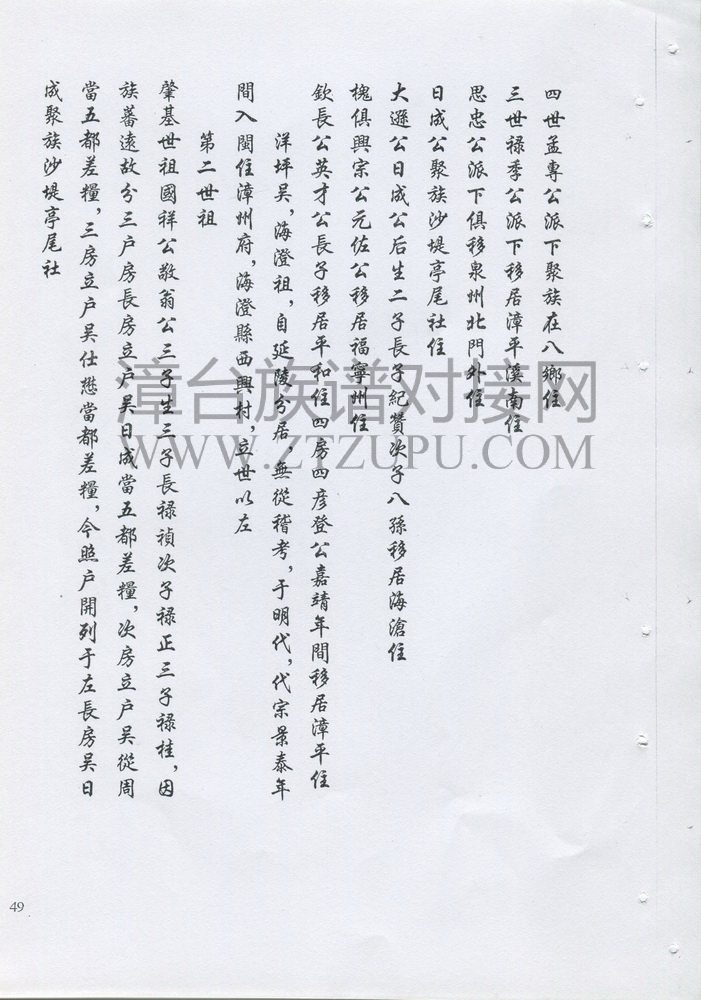 四世孟專公派下聚族在八鄉住
三世禄季公派下移居漳平溪南住
思忠公派下俱移泉州北門外住
日成公聚族沙堤亭尾社住
大遜公日成公后生二子長子紀贊次子八孫移居海滄住
槐俱興宗公元佐公移居福寧州住
欽長公英才公長子移居平和住四房四彥登公嘉靖年間移居漳平住
洋坪吴，海澄祖，自延陵分居，無從稽考，于明代，代宗景泰年
間入閩住漳州府，海澄縣西興村，立世以左
第二世祖
肇基世祖國祥公敬翁公三子生三子長禄禎次子禄正三子禄桂，因
族蕃遠故分三户房長房立户吴日成當五都差糧，次房立户吴從周
當五都差糧，三房立户吴仕懋當都差糧，今照户開列于左長房吴日
成聚族沙堤亭尾社
49
漳台族谱对接网
WWW.ZTZUPU.COM